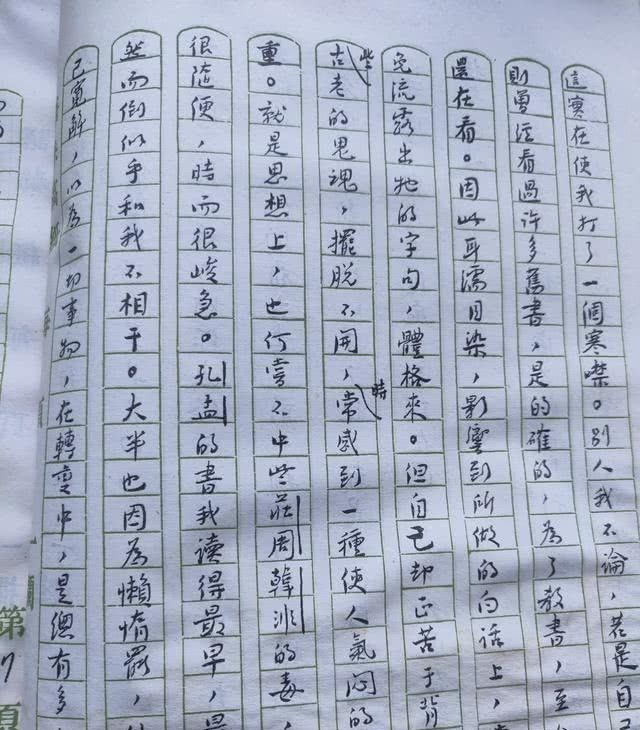 這實在使我打了一個寒噤。别人我不論，若是自己
則曾經看過許多舊書，是的確的，為了教書，至
還在看。因此耳濡目染，影響到所做的白話上，
免流露出牠的字句，體格來。但自己却正苦于背
些古老的鬼魂，擺脱不開，時常感到一種使人氣悶的
重。就是思想上，也何嘗不中些莊周韓非的毒，
很隨便，時而很峻急。孔孟的書我读得最早，最
然而倒似乎和我不相干。大半也因為懶惰罷，
己寬解，以為一切事物，在轉變中，是總有多
第7頁